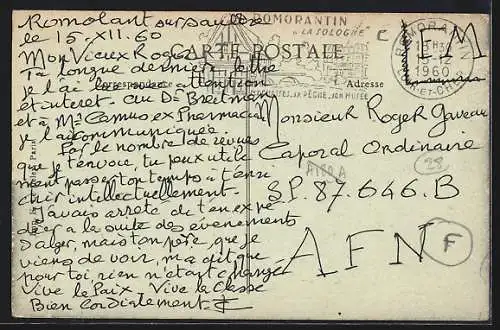 Romorantin sur Sauldre
le 15.XII.60
Mon Vieux Roger
Ta longue dernière lettre
je l'ai lu avec attention
et interet. Au Dr Breitman
et à Mr Camus ex Pharmacien
je l'ai communiquée.
Par le nombre de revues
que je t'envoie tu peux utile
ment passer ton temps à t'ens
truir intellectuellement.
J'avais arrêté de t'en expé
dier à la suite des évènements
d'Alger, mais ton père, que je
viens de voir, m'a dit que
pour toi, rien n'était changé.
Vive la Paix, Vive la Classe
Bien Cordialement
ROMORANTIN
"LA SOLOGNE"
CARTE POSTALE
Correspondance
Adresse
SA PÊCHE, SON MUSÉE
ROMORANTIN
15-12
1960
LOIR-ET-CHER
F M
Monsieur Roger Gaveau
Caporal Ordinaire
S.P. 87.646.B
AFN
28
F
Paris